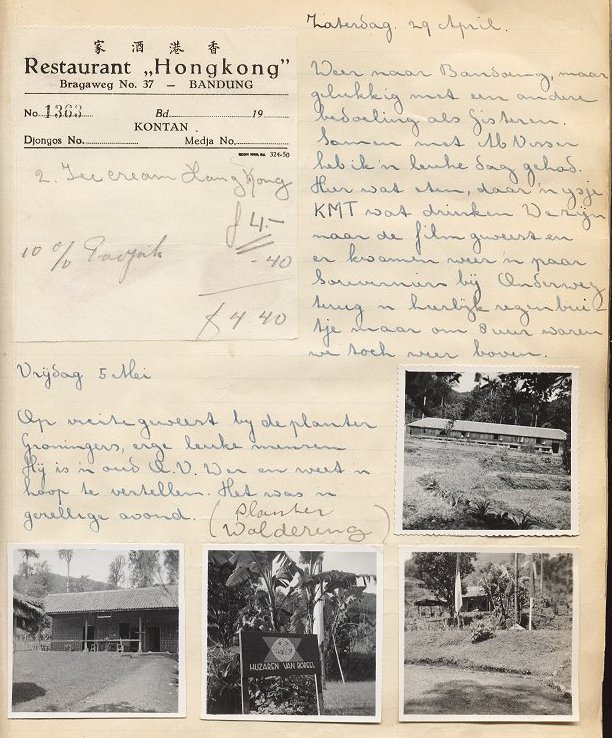 香港酒家
Restaurant „Hongkong"
Bragaweg No. 37 — BANDUNG
No. 1363 Bd. 19
KONTAN
Djongos No. Medja No.
324-50
2. Icecream Hang Kong
f 4.-
10% -40
f 4.40
Zaterdag. 29 April.
Weer naar Bandoeng, maar
gelukkig met een andere
bedoeling als Gisteren.
Samen met M Visser
heb ik 'n leuke dag gehad.
Hier wat eten, daar 'n ijsje
KMT wat drinken We zijn
naar de film geweest en
er kwamen weer 'n paar
Souveniers bij Onderweg
terug n heerlijk regenbui
tje maar om 8 uur waren
we toch weer boven.
Vrijdag 5 Mei
Op visite geweest bij de planter
Groningers, erge leuke mensen
Hij is 'n oud en weet 'n
hoop te vertellen. Het was n
gezellige avond. (planter
Woldering)
HUZAREN VAN BOREEL